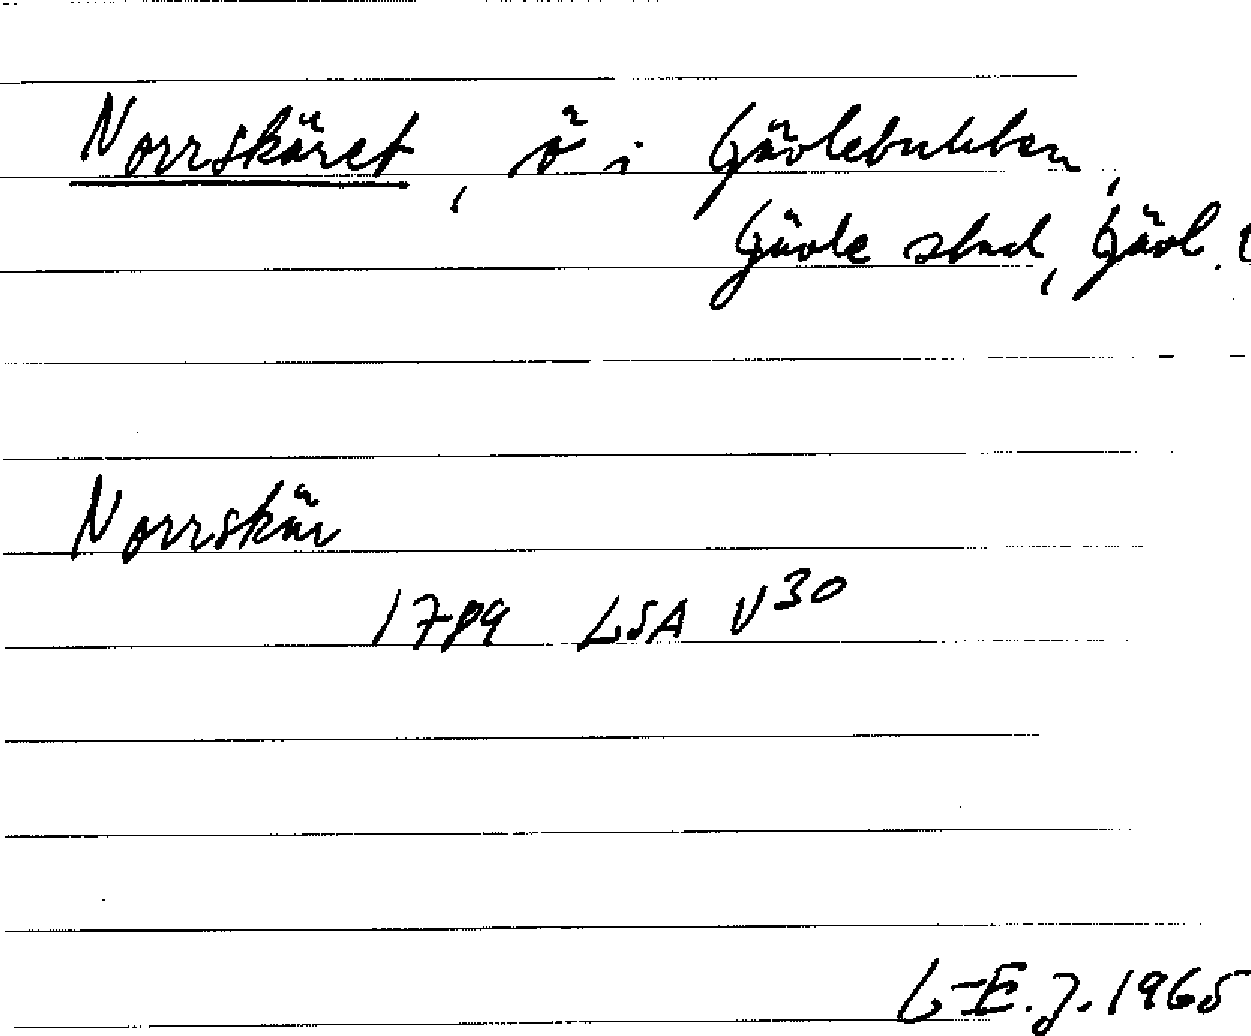 Norrskäret, ö i Gävlebukten,
Gävle stad, Gävl. l
Norrskär
1789 LSA V30
L-E.J. 1965